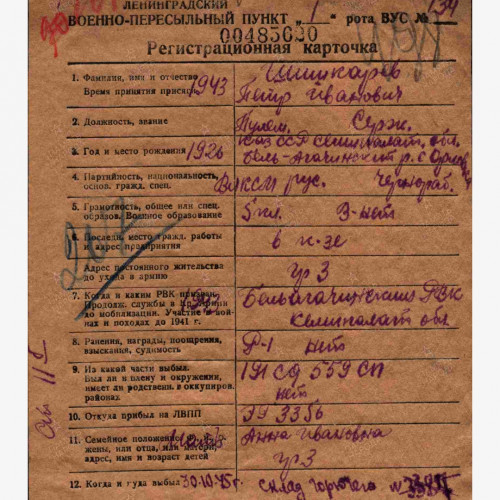 ЛЕНИНГРАДСКИЙ
ВОЕННО-ПЕРЕСЫЛЬНЫЙ ПУНКТ „1" рота ВУС № 134
00485620
Регистрационная карточка
1. Фамилия, имя и отчество
Время принятия присяги 1943 Петр Иванович
2. Должность, звание Пулем. Серж.
3. Год и место рождения 1926 КазССР Семипалат. обл.
Бель-Агачинский р.
4. Партийность, национальность,
основ. гражд. спец. ВЛКСМ рус. Чернораб.
5. Грамотность, общее или спец.
образов. Военное образование 5 кл. В-нет
6. Последн. место гражд. работы
и адрес предприятия в к-зе
Адрес постоянного жительства
до ухода в армию гр 3
7. Когда и каким РВК призван Бельагачинским РВК
Продолж. службы в Кр. Армии
до мобилизации. Участие в вой- Семипалат обл
нах и походах до 1941 г.
8. Ранения, награды, поощрения,
взыскания, судимость Р-1 нет
9. Из какой части выбыл. 191 СД 559 СП
Был ли в плену и окружении,
имеет ли родствен. в оккупиров. нет
районах
10. Откуда прибыл на ЛВПП ЭГ 3356
11. Семейное положение, Мать Анна Ивановна
жены, или отца, или матери,
адрес, имя и возраст детей гр 3
12. Когда и куда выбыл 30.10.45 г. склад горючего №